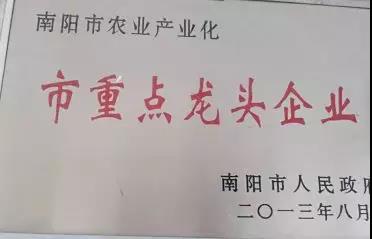 南阳市农业产业化
市重点龙头企业
南阳市人民政府
二〇一三年八月